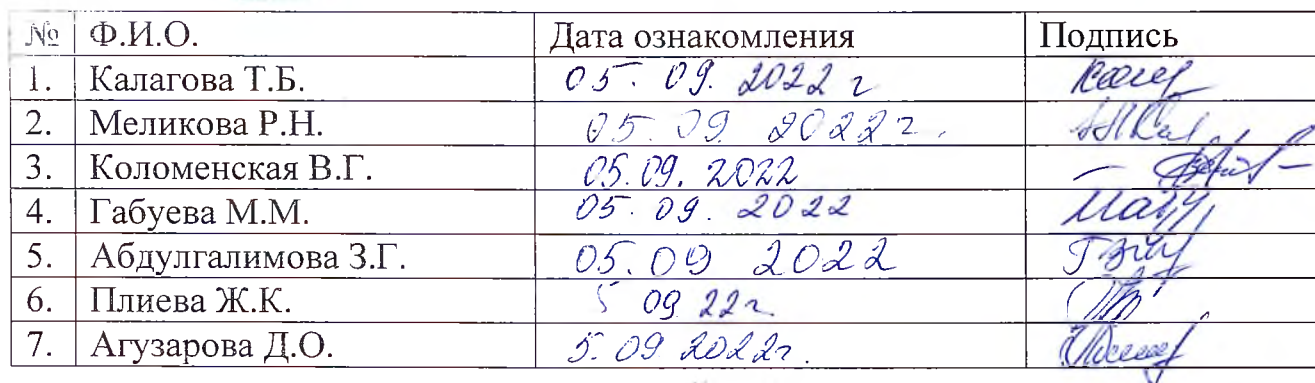 № Ф.И.О. Дата ознакомления Подпись
1. Калагова Т.Б. 05. 09. 2022 г
2. Меликова Р.Н. 05. 09. 2022 г.
3. Коломенская В.Г. 05.09. 2022
4. Габуева М.М. 05. 09. 2022
5. Абдулгалимова З.Г. 05. 09 2022
6. Плиева Ж.К. 5 09 22 г
7. Агузарова Д.О. 5. 09 2022г.